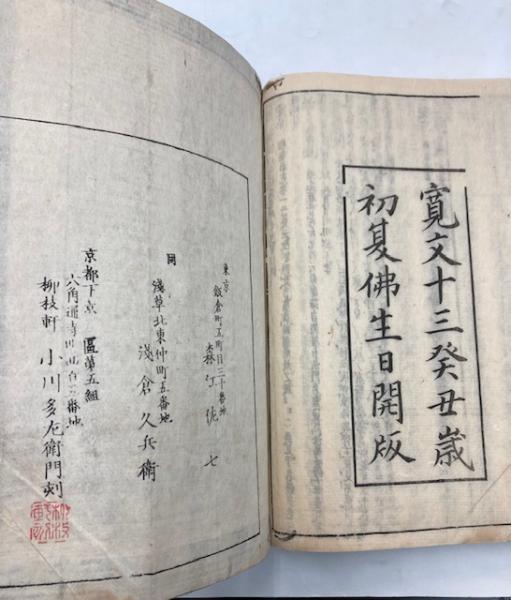 寛文十三癸丑歳
初夏佛生日開版
東京
飯倉町五丁目三十番地
森江佐七
同
淺草北東仲町五番地
淺倉久兵衛
京都下京區第五組
六角通寺町
柳枝軒 小川多左衛門刻